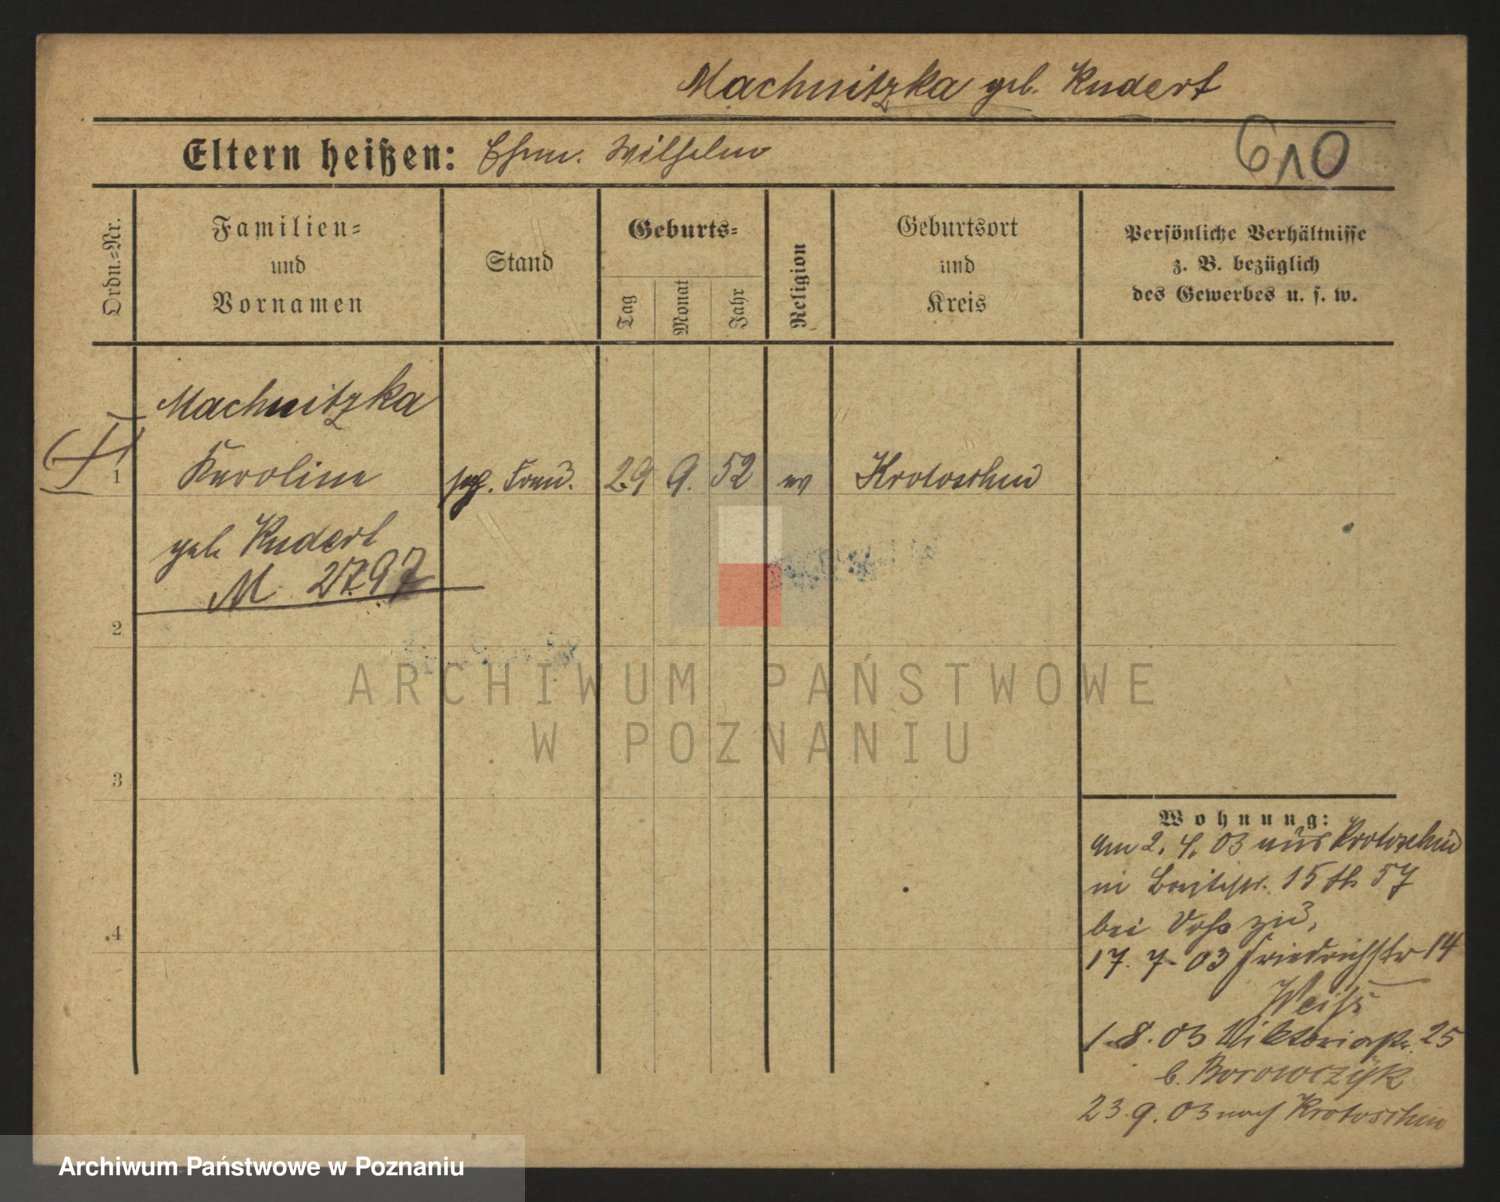 Machnitzka geb. Kudert
Eltern heißen: Ehem. Wilhelm
610
Ordn.-Nr.
Familien-
und
Vornamen
Stand
Geburts-
Tag
Monat
Jahr
Religion
Geburtsort
und
Kreis
Persönliche Verhältnisse
z. B. bezüglich
des Gewerbes u. s. w.
Machnitzka
1 Karoline 29 9. 52 ev Krotoschin
geb. Kudert
M 2797
2
3
4
ARCHIWUM PAŃSTWOWE
W POZNANIU
Wohnung:
am 2. 4. 03 aus Krotoschin
in 15 57
bei Voß zu,
17. 7. 03 Friedrichstr 14
Weiß
1. 8. 03 Viktoriastr. 25
b. Borowczyk
23. 9. 03 nach Krotoschin
Archiwum Państwowe w Poznaniu